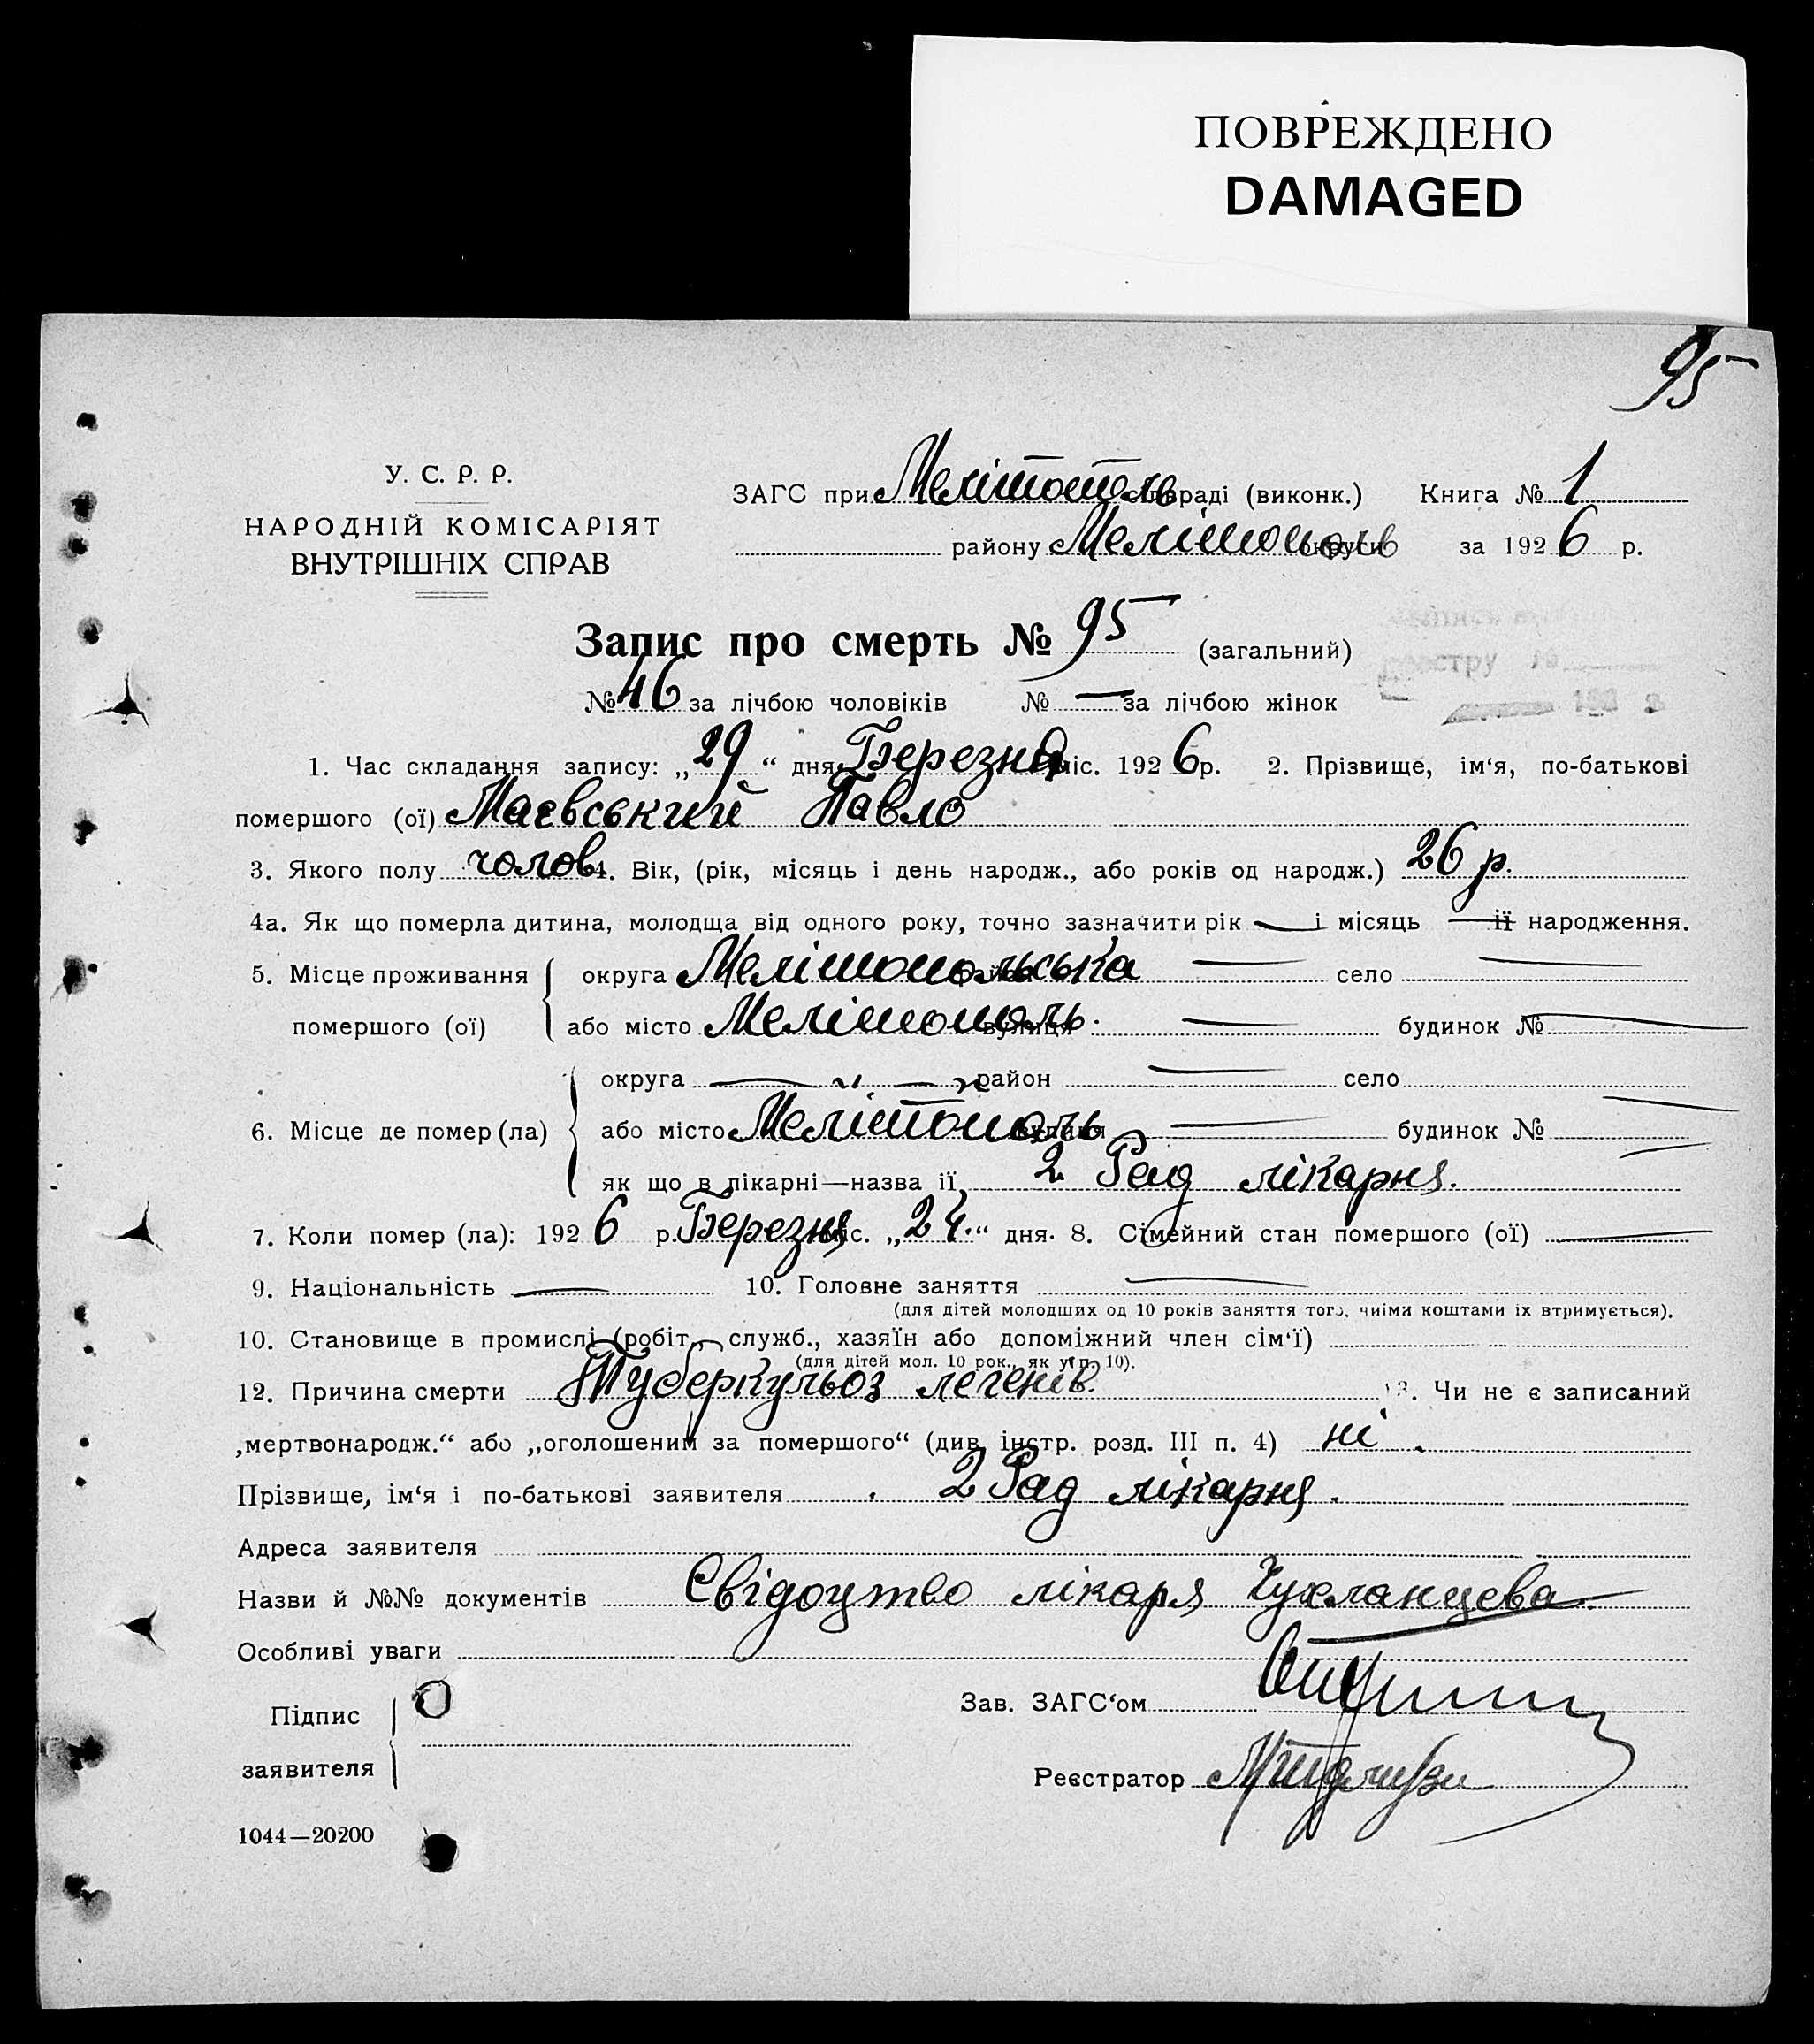 ПОВРЕЖДЕНО
DAMAGED
95
У. С. Р. Р.
НАРОДНІЙ КОМІСАРІЯТ
ВНУТРІШНІХ СПРАВ
ЗАГС при Мелітополь раді (виконк.) Книга № 1
району Мелітополь округи за 1926 р.
Запис про смерть № 95 (загальний)
реестру №
№ 46 за лічбою чоловіків № — за лічбою жінок
1. Час складання запису: „29“ дня Березня міс. 1926 р. 2. Прізвище, ім‘я, по-батькові
помершого (ої) Маєвський Павло
3. Якого полу чолов 4. Вік, (рік, місяць і день народж., або років од народж.) 26 р.
4а. Як що померла дитина, молодща від одного року, точно зазначити рік — і місяць — її народження.
5. Місце проживання округа Мелітопольська район — село —
помершого (ої) або місто Мелітополь. вулиця — будинок № —
округа — „ — район — село
6. Місце де помер (ла) або місто Мелітополь вулиця — будинок № —
як що в лікарні—назва її 2 Рад лікарня.
7. Коли помер (ла): 1926 р. Березня міс. „24.“ дня. 8. Сімейний стан помершого (ої) —
9. Національність — 10. Головне заняття —
(для дітей молодших од 10 років заняття того, чиїми коштами їх втримується).
10. Становище в промислі (робіт., служб., хазяїн або допоміжний член сім‘ї)
(для дітей мол. 10 рок., як у п. 10).
12. Причина смерти Туберкульоз легенів. 13. Чи не є записаний
„мертвонародж.“ або „оголошеним за помершого“ (див. інстр. розд. III п. 4) ні.
Прізвище, ім‘я і по-батькові заявителя 2 Рад лікарня.
Адреса заявителя
Назви й №№ документів Свідоцтво лікаря Чухланцева.
Особливі уваги
Підпис
заявителя
Зав. ЗАГС‘ом
Реєстратор
1044—20200